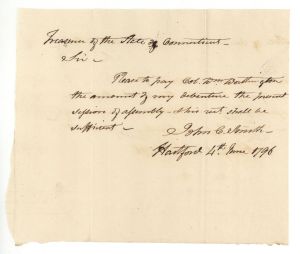 Treasurer of the State of Connecticut -
Sir -
Please to pay Col. Wm Worthington
the amount of my debenture the present
session of assembly - this rect shall be
sufficient -
John C. Smith -
Hartford 4th June 1796